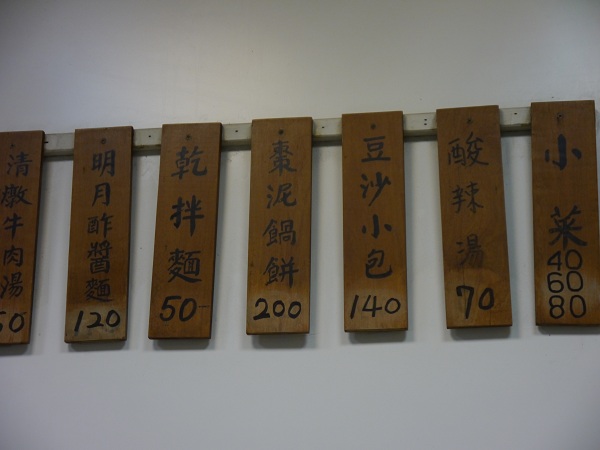 清燉牛肉湯
50
明月酢醬麵
120
乾拌麵
50-
棗泥鍋餅
200
豆沙小包
140
酸辣湯
70
小菜
40
60
80